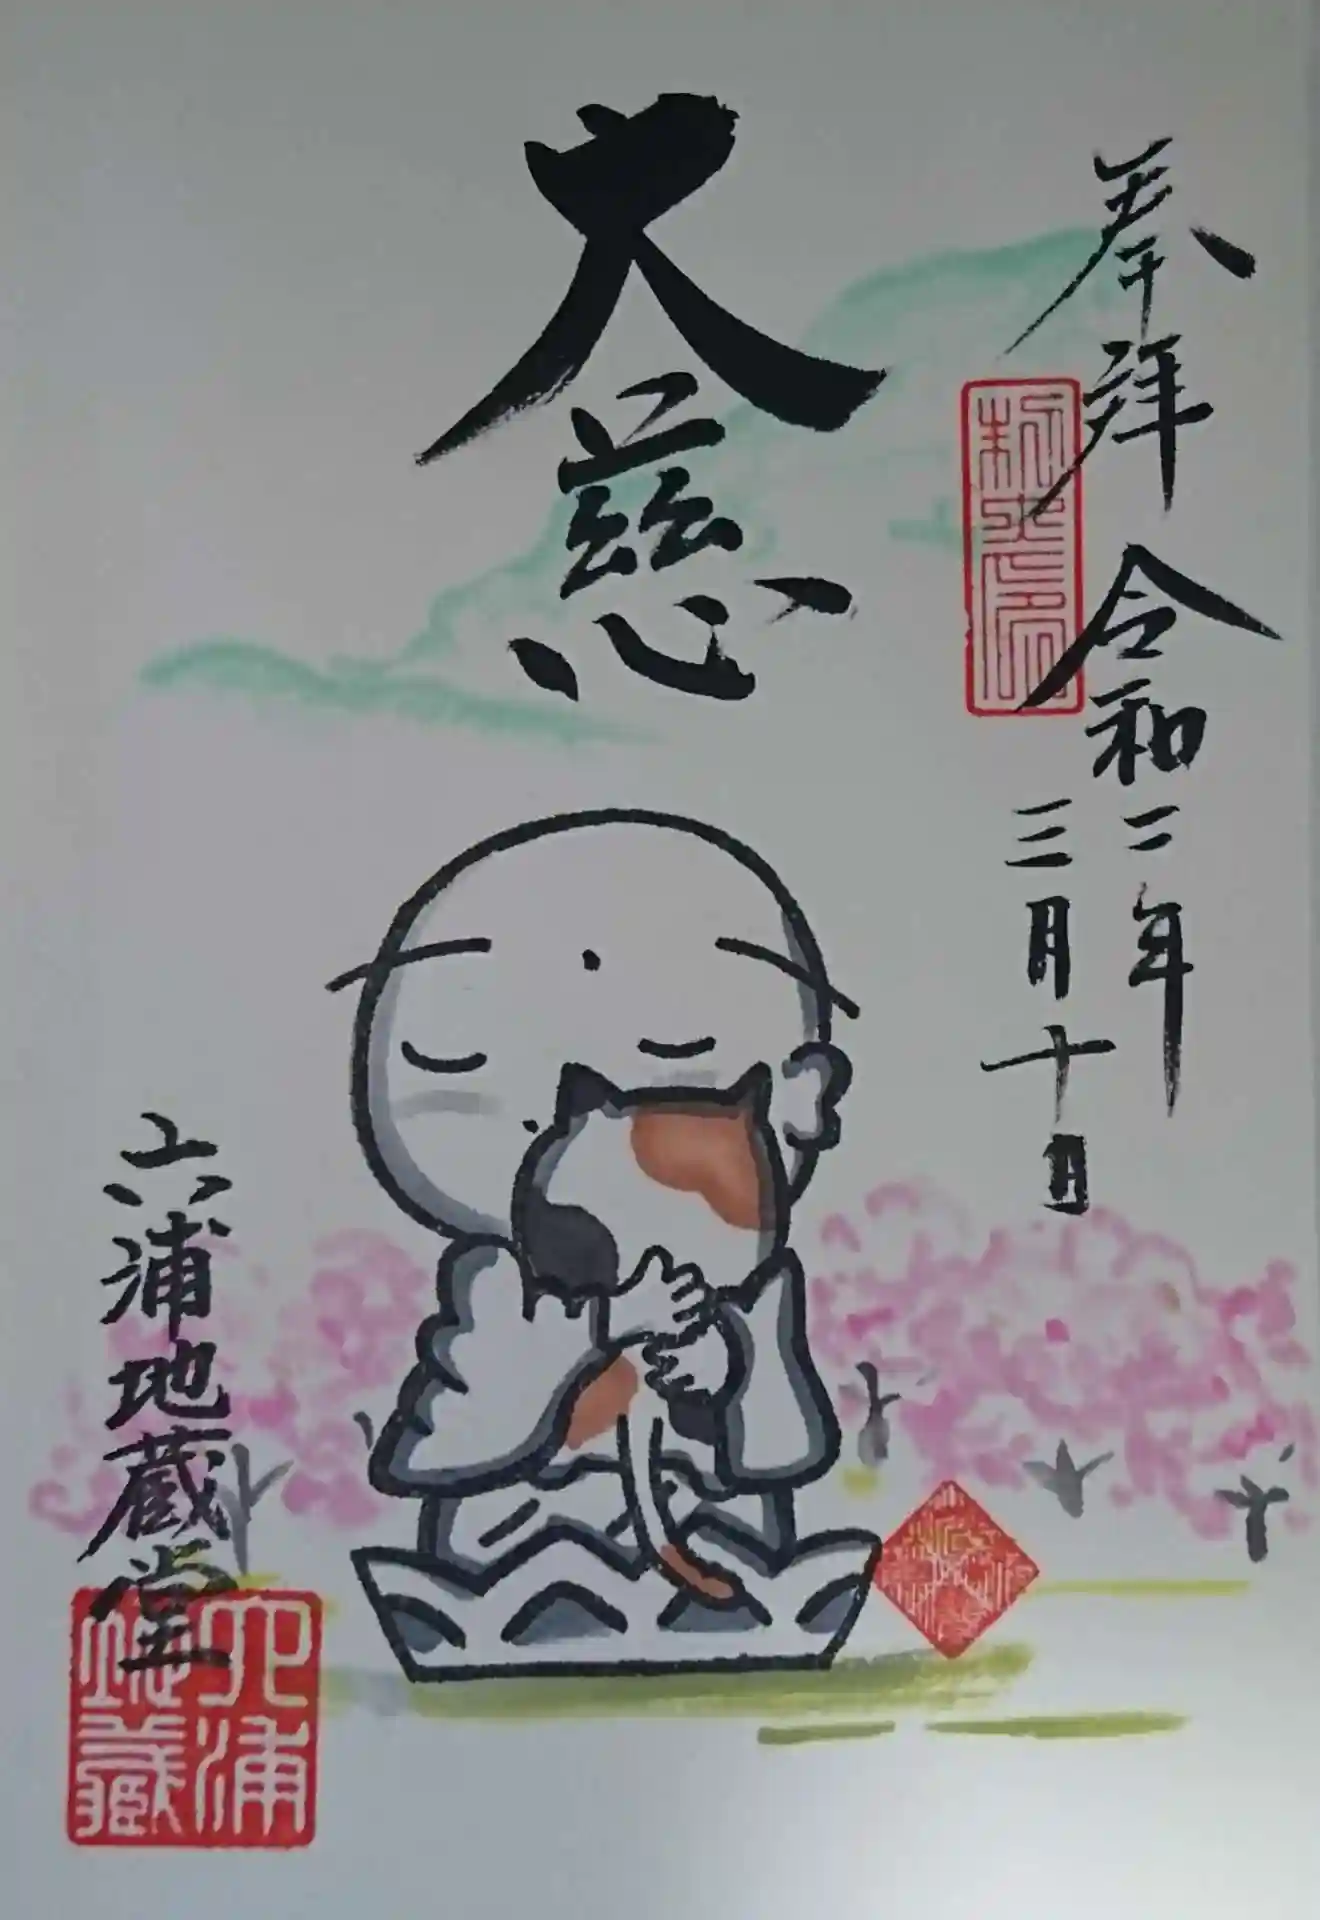 奉拝 令和二年
三月十日
大慈
六浦地蔵堂
六浦
地蔵